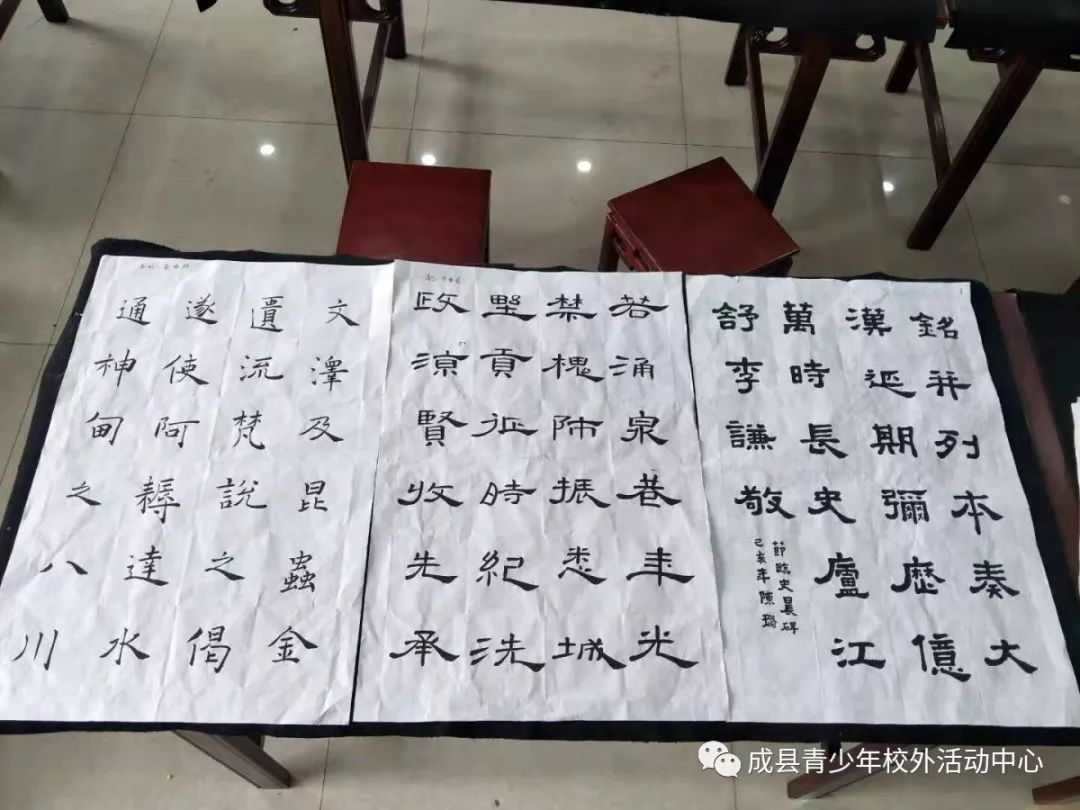 銘并列本奏大
漢延期彌歷億
萬時長史廬江
舒李謙敬
節臨史晨碑
己亥年陳璐
若涌泉巷年光
禁槐沛振悉城
野貢征時紀洗
政涼賢收先承
文澤及昆蟲金
遺流梵說之偈
遂使阿耨達水
通神甸之八川
成县青少年校外活动中心